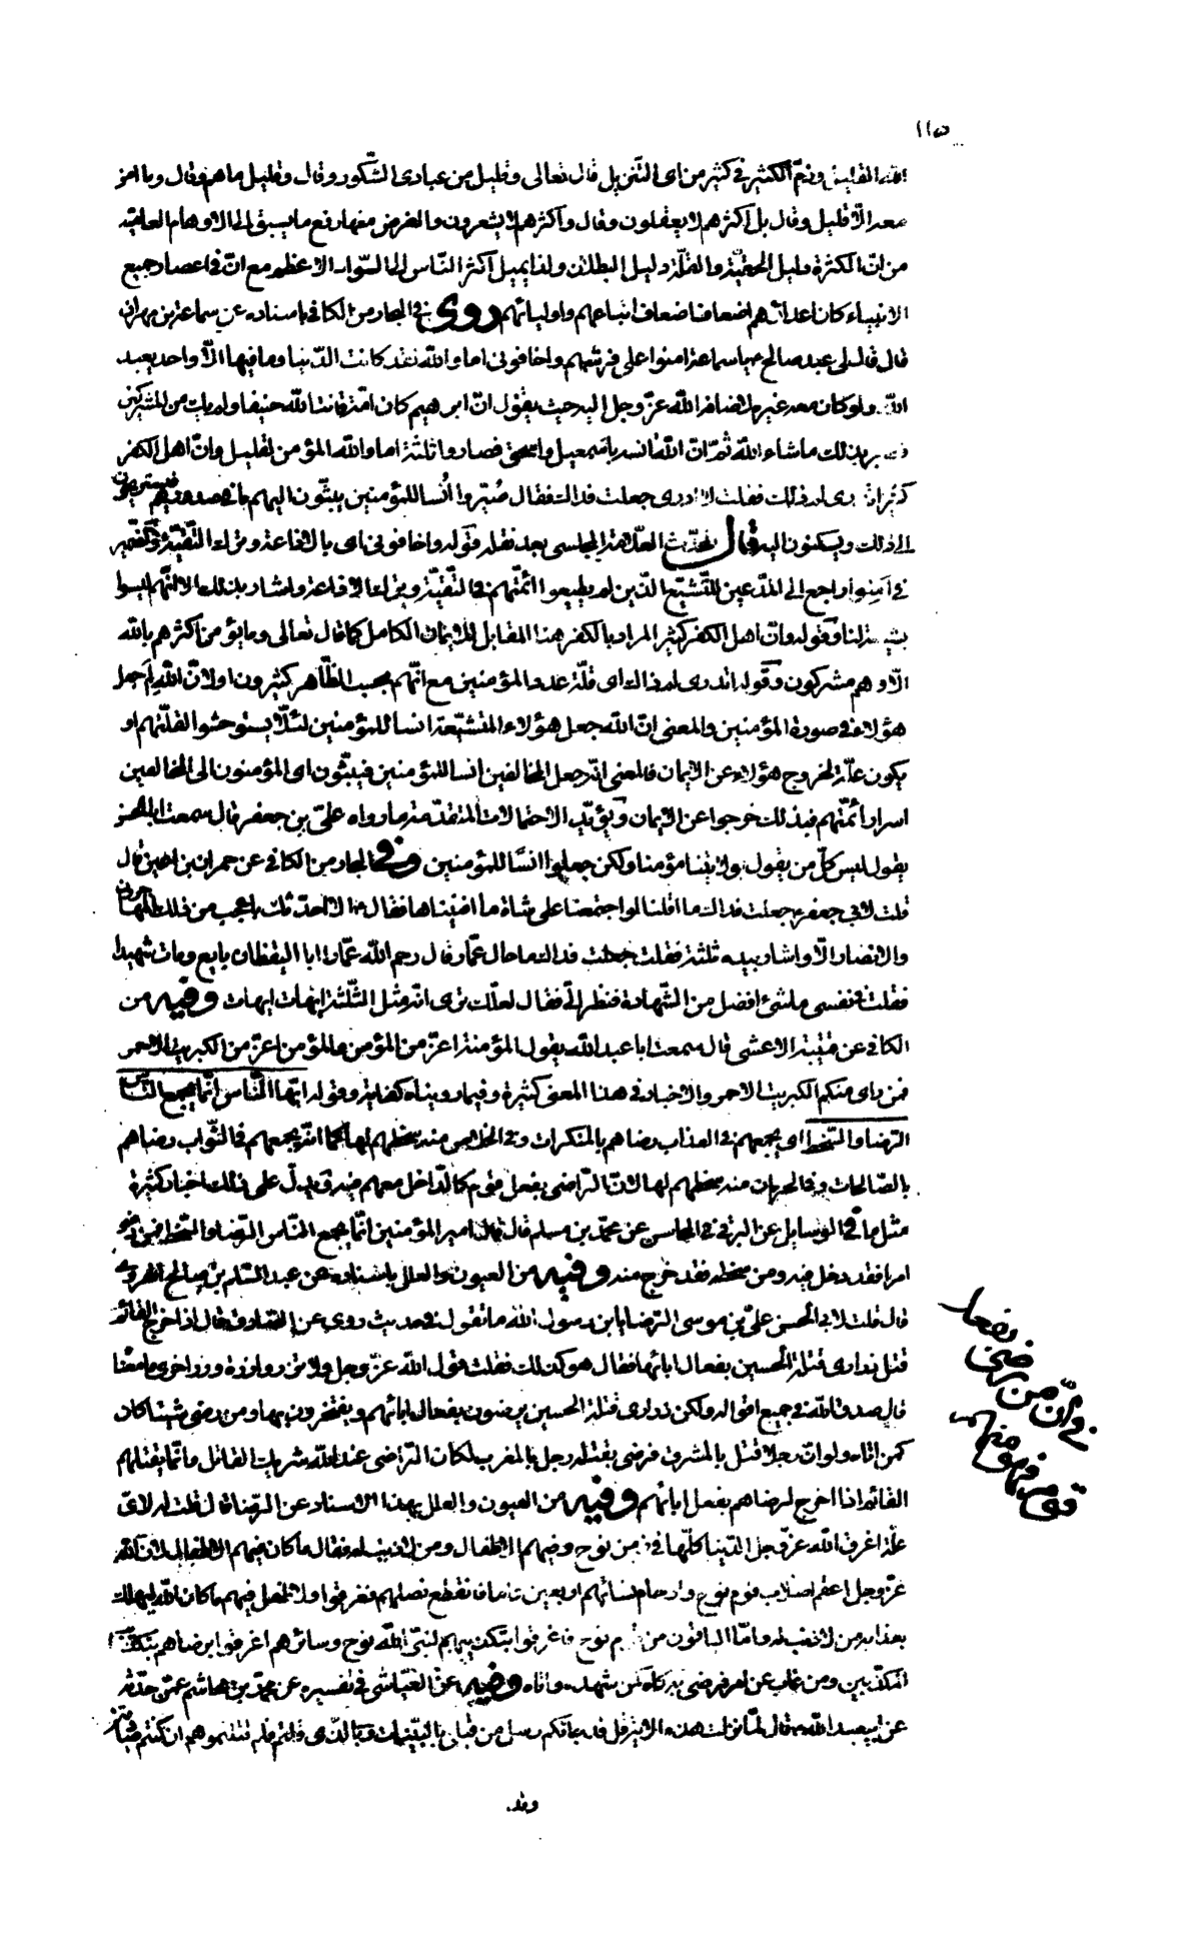 ١١٥
القليل وذمّ الكثير في كثير من آى التّنزيل قال تعالى وقليل من عبادى الشّكور وقال وقليل ماهم وقال وما امن
معه الّا قليل وقال بل اكثرهم لا يعقلون وقال واكثرهم لا يشعرون والغرض منها رفع ما يسبق الى الاوهام العامية
من انّ الكثرة دليل الحقّية والقلّة دليل البطلان ولذا يميل اكثر النّاس الى السّواد الاعظم مع انّ في اعصار جميع
الانبياء كان اعدائهم اضعاف اضعاف اتباعهم واوليائهم روى في البحار من الكافي باسناده عن سماعة بن مهران
قال قال لى عبد صالح يا سماعة امنوا على فرشهم واخافونى اما والله لقد كانت الدّنيا وما فيها الّا واحد يعبد
الله ولو كان معه غيره لاضافه الله عزّ وجل اليه حيث يقول انّ ابرهيم كان امّة قانتا لله حنيفا ولم يك من المشركين
بذلك ماشاء الله ثمّ انّ الله انسه باسمعيل واسحق فصاروا ثلثة اما والله المؤمن لقليل وانّ اهل الكفر
كثير لم ذلك فقلت لا ادرى جعلت فداك فقال صُيّروا اُنسا للمؤمنين يبثّون اليهم ما في صدورهم فيستريحون
الى ذلك ويسكنون اليه قال المحدّث العلّامة المجلسى بعد نقله قوله واخافونى اى بالاذاعة وترك التّقيّة والضّمير
في امنوا راجع الى المدّعين للتّشيّع الّذين لم يطيعوا ائمّتهم في التّقيّة وترك الاذاعة واشار بذلك الى انّهم ليسوا
لنا وقوله وانّ اهل الكفر كثير المراد بالكفر هنا المقابل للايمان الكامل كما قال تعالى وما يؤمن اكثرهم بالله
الّا وهم مشركون وقوله اتدرى لم ذاك اى قلّة عدد المؤمنين مع انّهم بحسب الظّاهر كثيرون اولانّ الله لم جعل
هؤلاء في صورة المؤمنين والمعنى انّ الله جعل هؤلاء المتشيّعة انسا للمؤمنين لئلّا يستوحشوا لقلّتهم او
يكون علّة لخروج هؤلاء عن الايمان فالمعنى انّه جعل المخالفين انسا للمؤمنين فيبثّون اى المؤمنون الى المخالفين
اسرار أئمّتهم فبذلك خرجوا عن الايمان ويؤيّد الاحتمالات المتقدّمة ما رواه علىّ بن جعفر قال سمعت ابا الحسن
يقول ليس كلّ من يقول بولايتنا مؤمنا ولكن جعلوا انسًا للمؤمنين وفي البحار من الكافي عن حمران بن اعين قال
قلت لابي جعفر جعلت فداك ما اقلنا لو اجتمعنا على شاة ما افنيناها فقال الا احدّثك باعجب من ذلك المهاجرون
والانصار الّا واشار بيده ثلثة فقلت جعلت فداك ما حال عمّار قال رحم الله عمّارا ابا اليقظان بايع ومات شهيدا
فقلت في نفسى ما شئ افضل من الشّهادة فنظر الىّ فقال لعلّك ترى انّه مثل الثّلثة ايهات ايهات وفيه من
الكافي عن قتيبة الاعشى قال سمعت ابا عبد الله يقول المؤمنة اعزّ من المؤمن والمؤمن اعزّ من الكبريت الاحمر
فمن راى منكم الكبريت الاحمر والاخبار في هذا المعنى كثيرة وفيما رويناه كفاية وقوله ايّها النّاس انّما يجمع النّاس
الرّضا والسّخط اى يجمعهم في العذاب رضاهم بالمنكرات وفي الخلاص منه سخطهم لها كما انّه يجمعهم في الثّواب رضاهم
بالصّالحات وفي الحرمان منه سخطهم لها لانّ الرّاضى بفعل قوم كالدّاخل معهم فيه ويدلّ على ذلك اخبار كثيرة
مثل ما في الوسايل عن البرقى في المحاسن عن محمّد بن مسلم قال قال امير المؤمنين انّما يجمع النّاس الرّضا والسّخط فمن رضى
امرا فقد دخل فيه ومن سخطه فقد خرج منه وفيه من العيون والعلل باسناده عن عبد السّلم بن صالح الهروى
قال قلت لابى الحسن علىّ بن موسى الرّضا يابن رسول الله ما تقول في حديث روى عن الصّادق قال اذا خرج القائم
قتل ذرارى قتلة الحسين بفعال ابائها فقال هو كذلك فقلت قول الله عزّ وجل ولا تزر وازرة وزر اخرى ما معناه
قال صدق الله في جميع اقواله ولكن ذرارى قتلة الحسين يرضون بفعال ابائهم ويفتخرون بها ومن رضى شيئا كان
كمن اتاه ولو انّ رجلا قتل بالمشرق فرضى بقتله رجل بالمغرب لكان الرّاضى عند الله شريك القاتل وانّما يقتلهم
القائم اذا اخرج لرضاهم بفعل ابائهم وفيه من العيون والعلل بهذا الاسناد عن الرّضا قال قلت له لاىّ
علّة اغرق الله عزّ وجل الدّنيا كلّها في زمن نوح وفيهم الاطفال ومن لا ذنب له فقال ما كان فيهم الاطفال لانّ الله
عزّ وجل اعقم اصلاب قوم نوح وارحام نسائهم اربعين عاما فانقطع نسلهم فغرقوا ولا طفل فيهم ما كان الله ليهلك
بعذابه من لا ذنب له وامّا الباقون من قوم نوح فاغرقوا بتكذيبهم لنبىّ الله نوح وسائرهم اغرقوا برضاهم بتكذيب
المكذّبين ومن غاب عن امر فرضى به كان كمن شهده واتاه وفيه عن العيّاشى في تفسيره عن محمّد بن هاشم عمّن حدّثه
عن ابيعبد الله قال لمّا نزلت هذه الاية قل قد جائكم رسل من قبلى بالبيّنات وبالّذى قلتم فلم قتلتموهم ان كنتم صادقين
في انّ من رضى بفعل
قوم فهو منهم
وقد